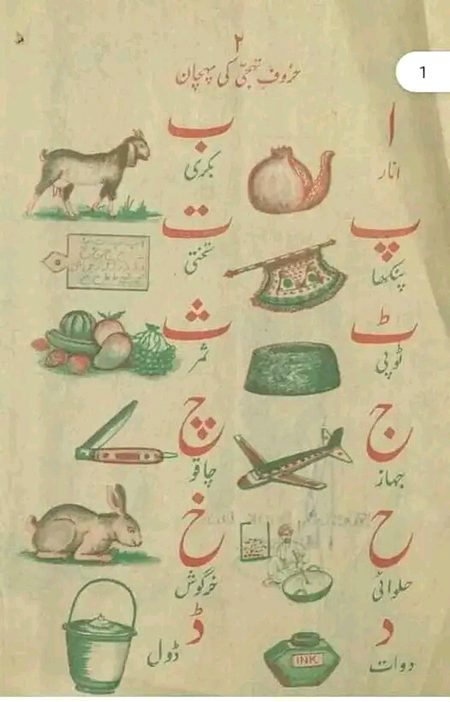 ۲
حروفِ تہجّی کی پہچان
1
ا
انار
ب
بکری
پ
پنکھا
ت
تختی
ٹ
ٹوپی
ث
ثمر
ج
جہاز
چ
چاقو
ح
حلوائی
خ
خرگوش
د
دوات
INK
ڈ
ڈول